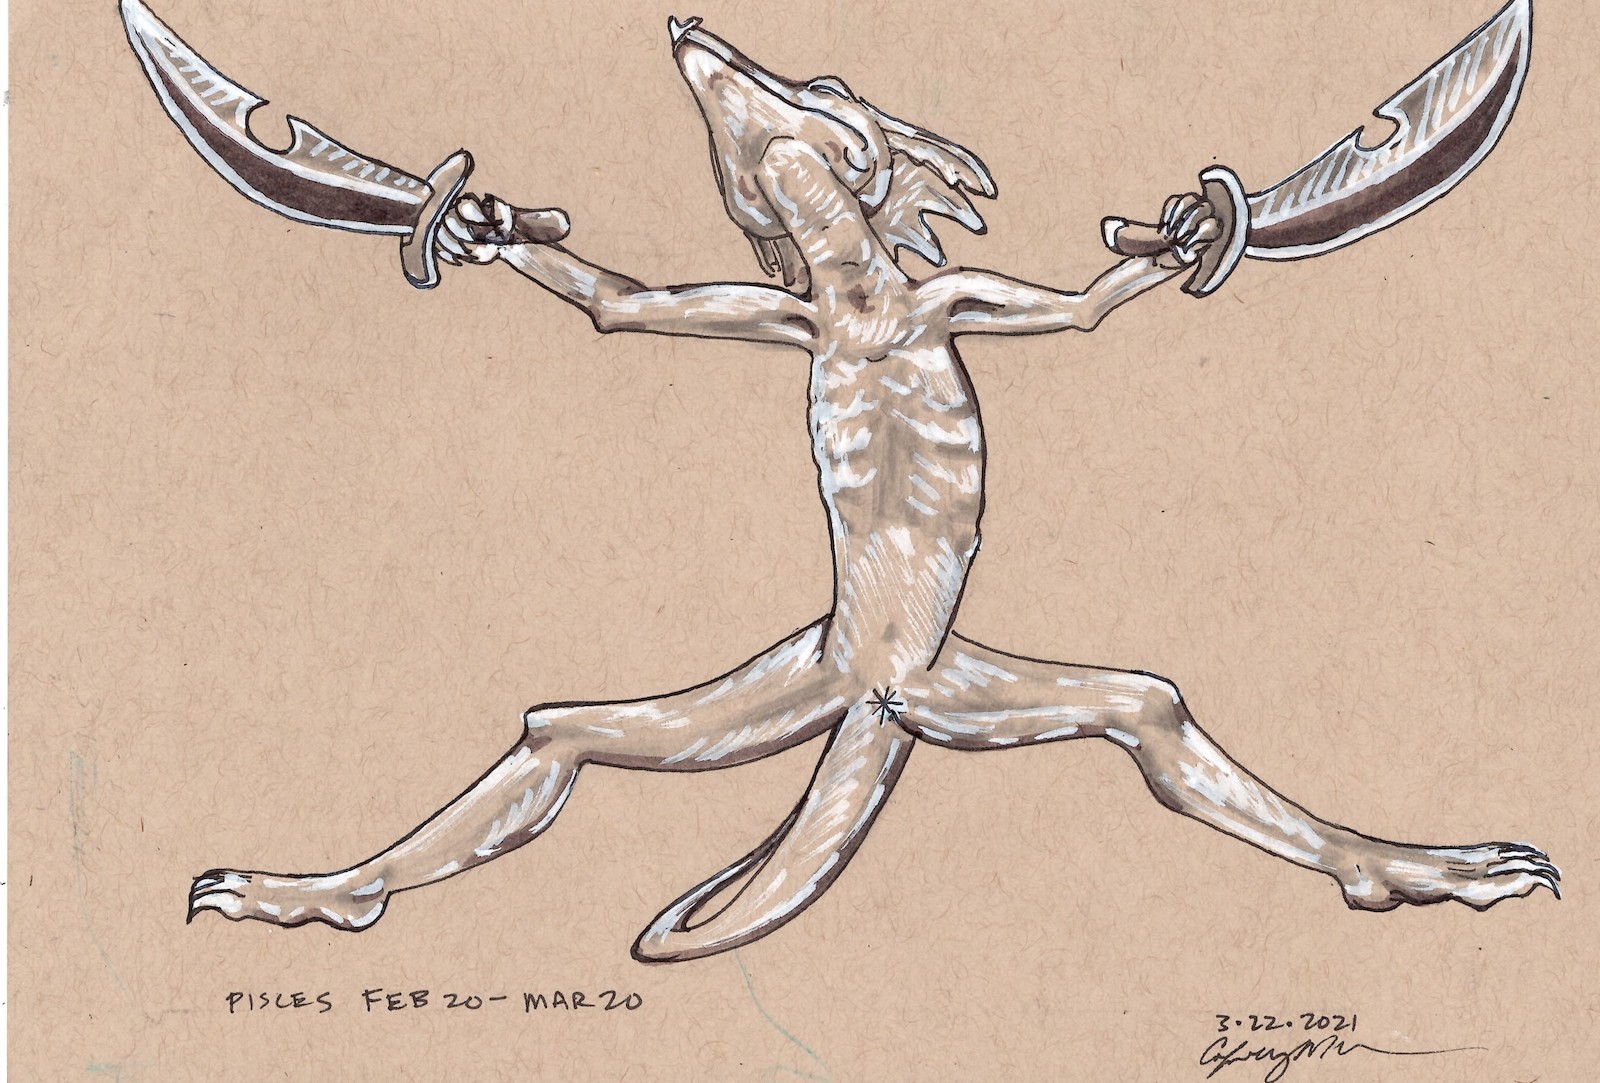 PISCES FEB 20 - MAR 20
3.22.2021